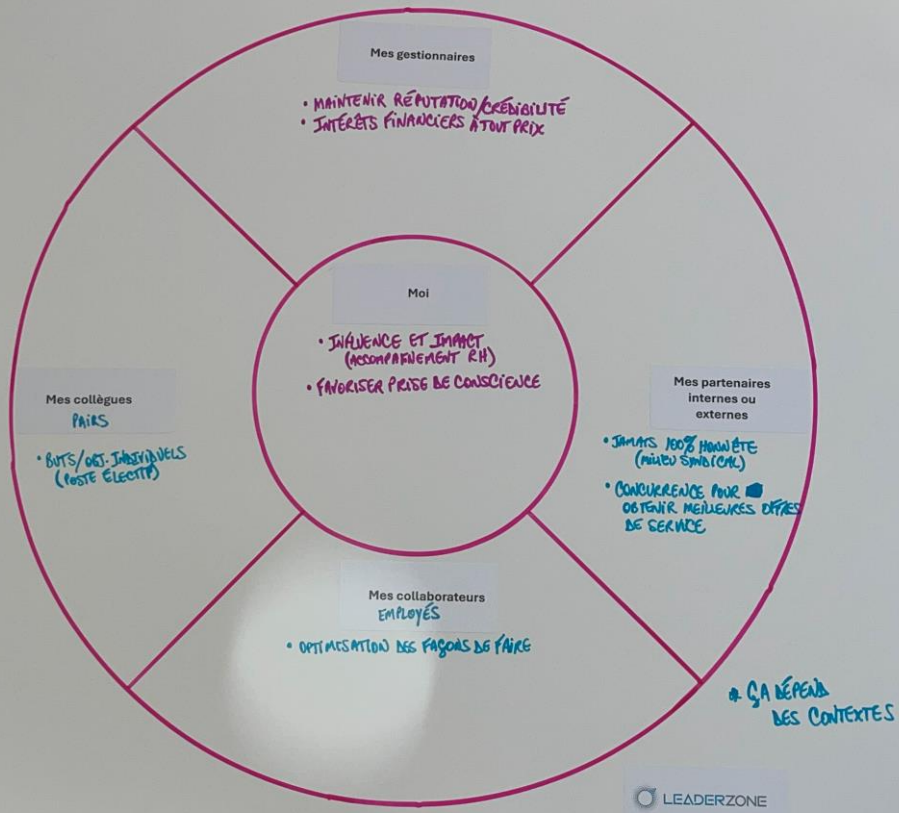 Mes gestionnaires
• MAINTENIR RÉPUTATION/CRÉDIBILITÉ
• INTÉRÊTS FINANCIERS À TOUT PRIX
Moi
• INFLUENCE ET IMPACT
(ACCOMPAGNEMENT RH)
• FAVORISER PRISE DE CONSCIENCE
Mes collègues
PAIRS
• BUTS/OBJ. INDIVIDUELS
(POSTE ÉLECTIF)
Mes partenaires
internes ou
externes
• JAMAIS 100% HONNÊTE
(MILIEU SYNDICAL)
• CONCURRENCE POUR
OBTENIR MEILLEURES OFFRES
DE SERVICE
Mes collaborateurs
EMPLOYÉS
• OPTIMISATION DES FAÇONS DE FAIRE
* ÇA DÉPEND
DES CONTEXTES
LEADERZONE